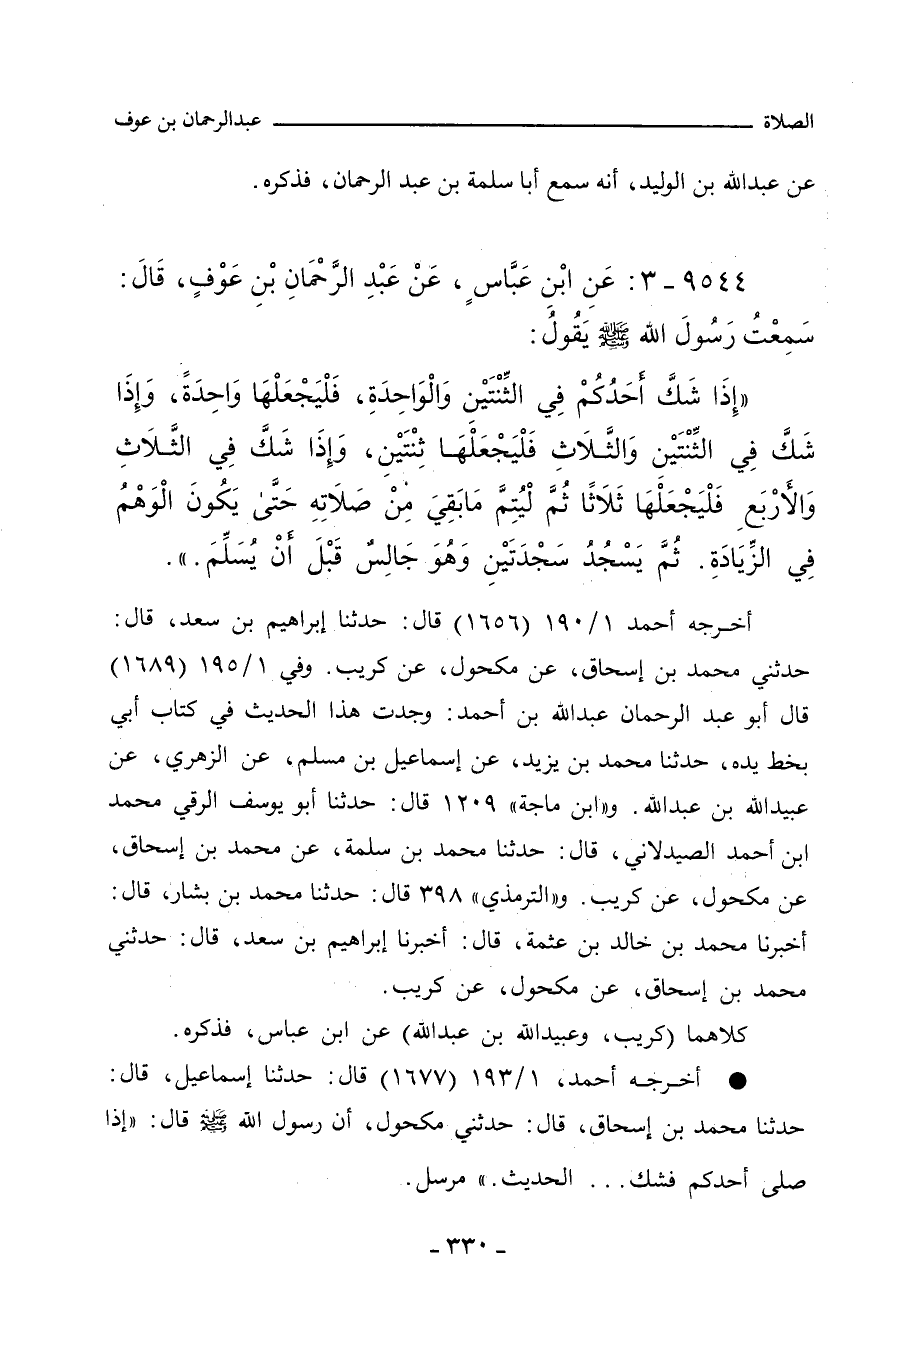 الصلاة ـــــــــــــــــــــــــ عبدالرحمان بن عوف
عن عبدالله بن الوليد، أنه سمع أبا سلمة بن عبد الرحمان، فذكره.
٩٥٤٤ - ٣: عَنِ ابْنِ عَبَّاسٍ، عَنْ عَبْدِ الرَّحْمَانِ بْنِ عَوْفٍ، قَالَ:
سَمِعْتُ رَسُولَ الله ﷺ يَقُولُ:
«إِذَا شَكَّ أَحَدُكُمْ فِي الثِّنْتَيْنِ وَالْوَاحِدَةِ، فَلْيَجْعَلْهَا وَاحِدَةً، وَإِذَا
شَكَّ فِي الثِّنْتَيْنِ وَالثَّلَاثِ فَلْيَجْعَلْهَا ثِنْتَيْنِ، وَإِذَا شَكَّ فِي الثَّلَاثِ
وَالأَرْبَعِ فَلْيَجْعَلْهَا ثَلَاثًا ثُمَّ لْيُتِمَّ مَابَقِيَ مِنْ صَلَاتِهِ حَتَّىٰ يَكُونَ الْوَهْمُ
فِي الزِّيَادَةِ. ثُمَّ يَسْجُدُ سَجْدَتَيْنِ وَهُوَ جَالِسٌ قَبْلَ أَنْ يُسَلِّمَ.».
أخرجه أحمد ١/١٩٠ (١٦٥٦) قال: حدثنا إبراهيم بن سعد، قال:
حدثني محمد بن إسحاق، عن مكحول، عن كريب. وفي ١/١٩٥ (١٦٨٩)
قال أبو عبد الرحمان عبدالله بن أحمد: وجدت هذا الحديث في كتاب أبي
بخط يده، حدثنا محمد بن يزيد، عن إسماعيل بن مسلم، عن الزهري، عن
عبيدالله بن عبدالله. و«ابن ماجة» ١٢٠٩ قال: حدثنا أبو يوسف الرقي محمد
ابن أحمد الصيدلاني، قال: حدثنا محمد بن سلمة، عن محمد بن إسحاق،
عن مكحول، عن كريب. و«الترمذي» ٣٩٨ قال: حدثنا محمد بن بشار، قال:
أخبرنا محمد بن خالد بن عثمة، قال: أخبرنا إبراهيم بن سعد، قال: حدثني
محمد بن إسحاق، عن مكحول، عن كريب.
كلاهما (كريب، وعبيدالله بن عبدالله) عن ابن عباس، فذكره.
● أخرجه أحمد، ١/١٩٣ (١٦٧٧) قال: حدثنا إسماعيل، قال:
حدثنا محمد بن إسحاق، قال: حدثني مكحول، أن رسول الله ﷺ قال: «إذا
صلى أحدكم فشك... الحديث.» مرسل.
- ٣٣٠ -